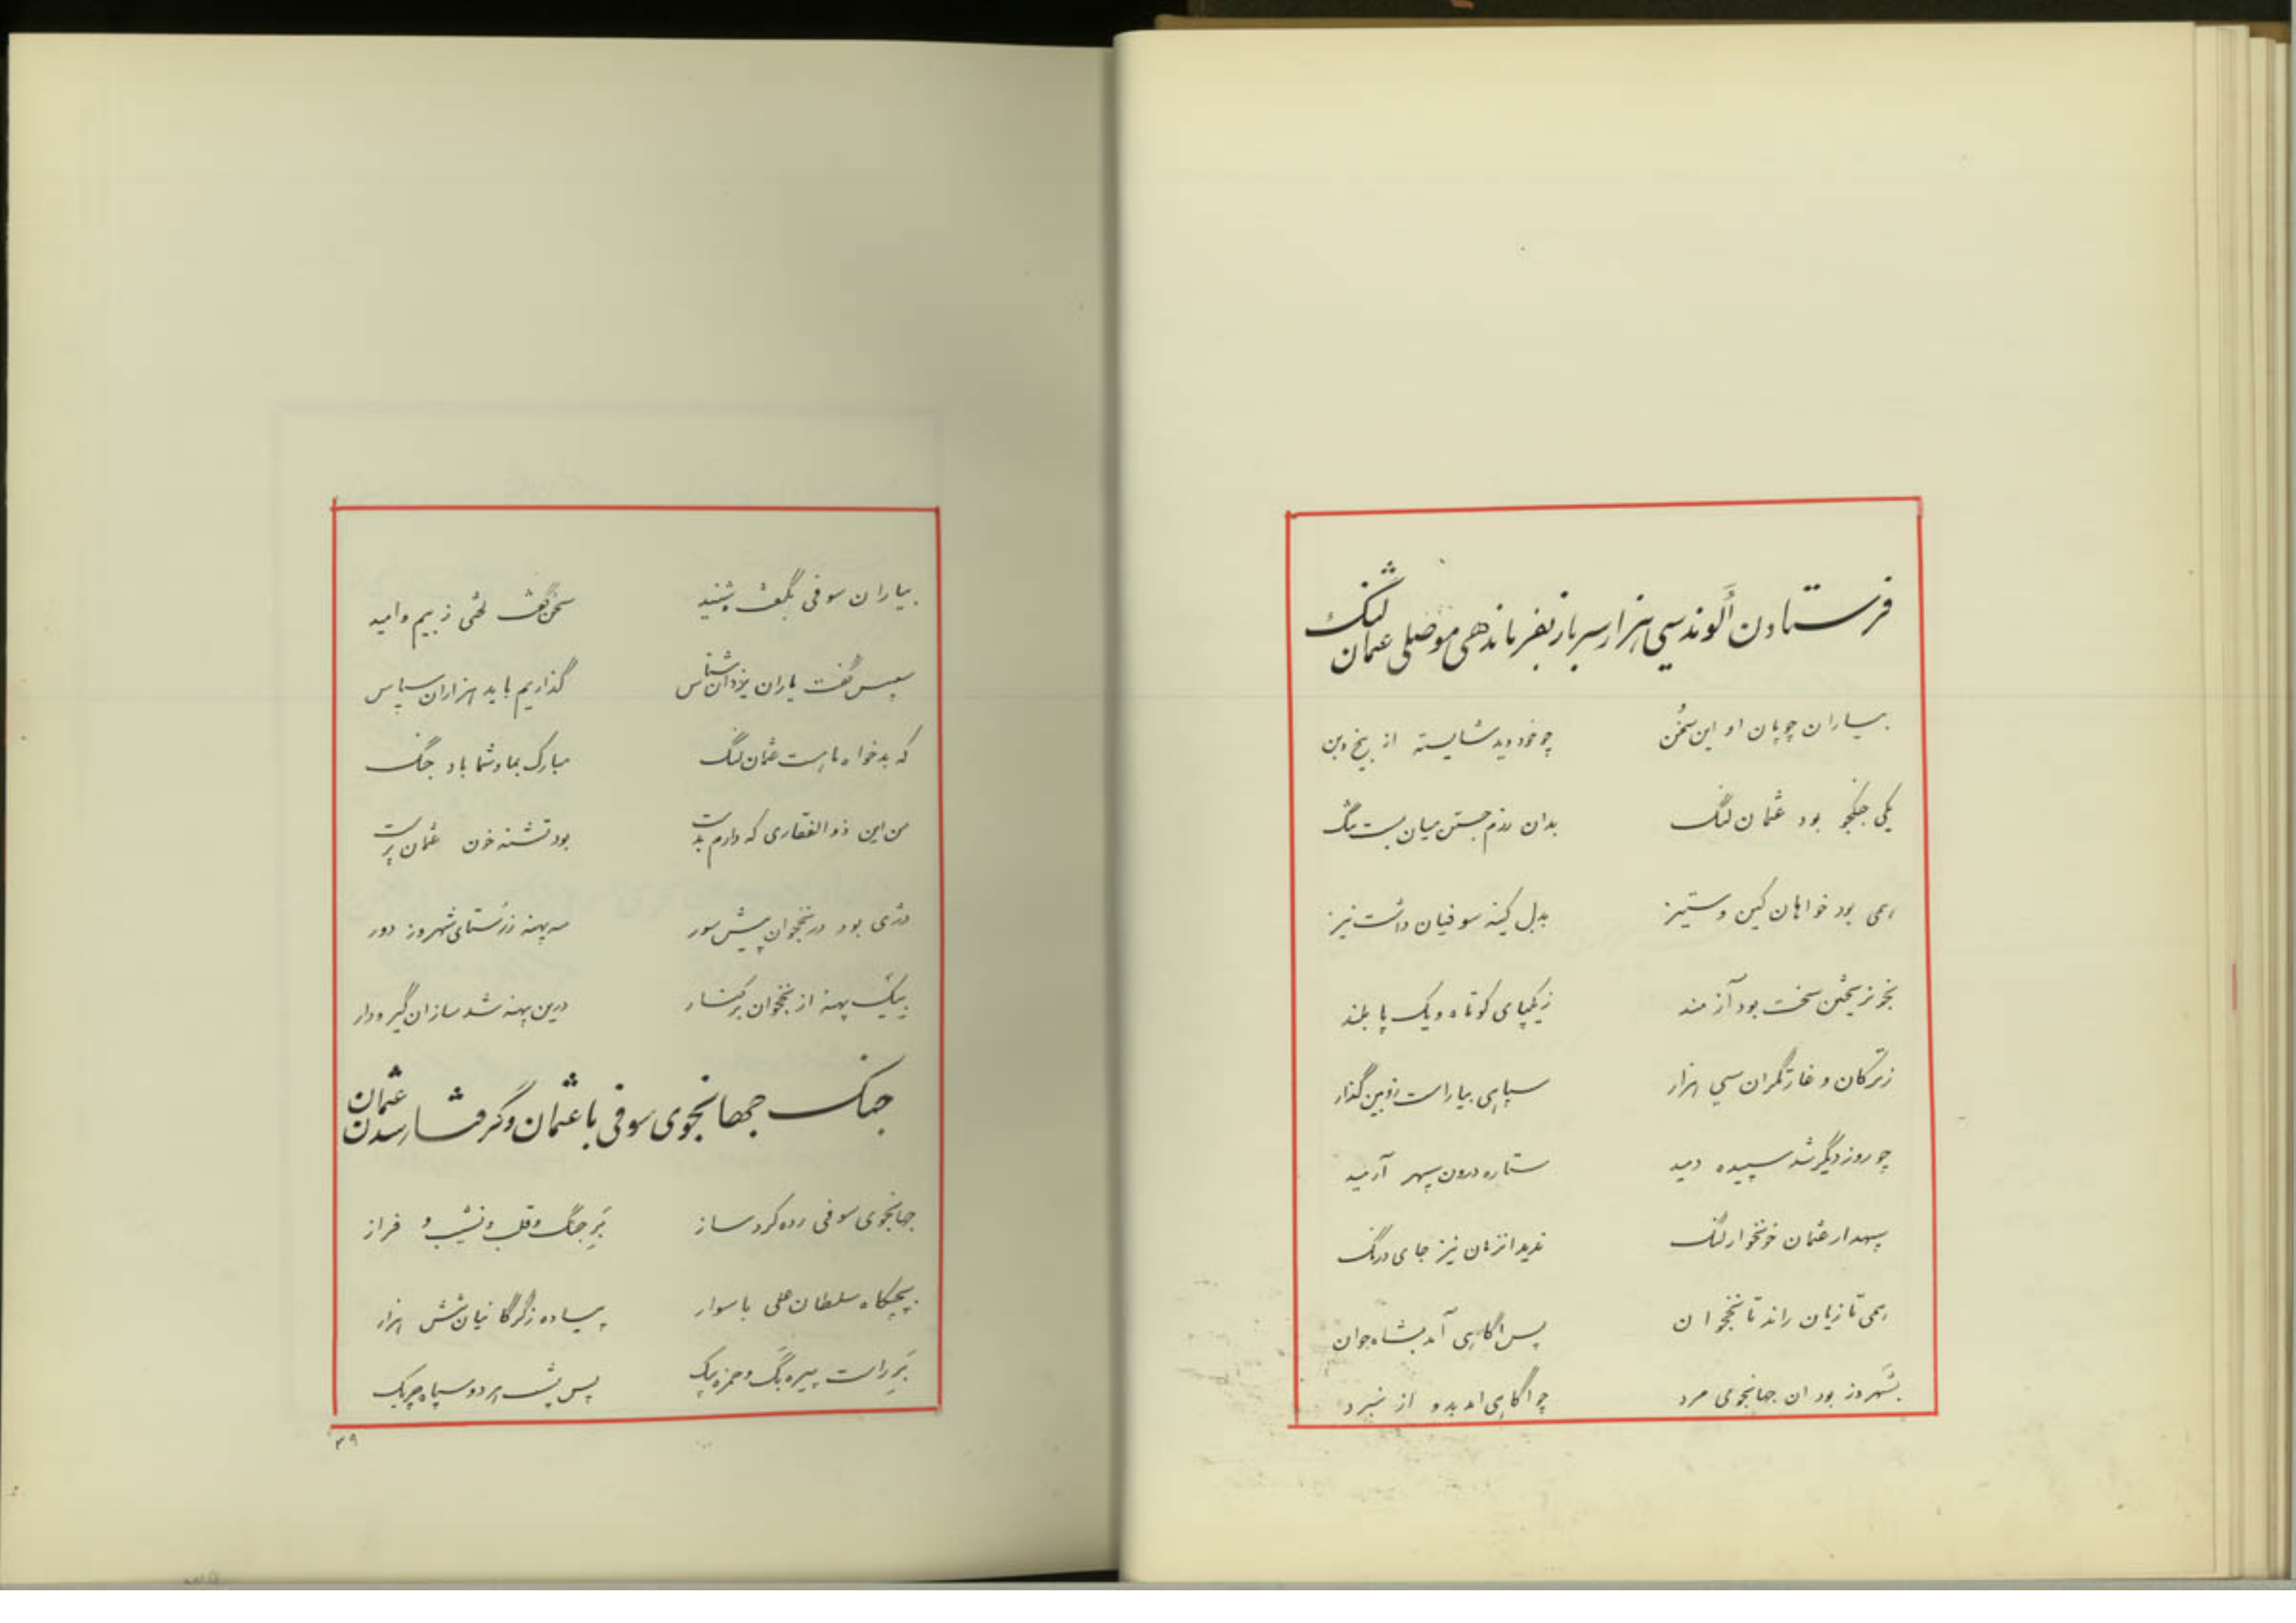 فرستادن اَلوند سی هزار سرباز بفرماندهی موصلی عثمان لنگ
بیاران چو پان او این سخُن    چو خود دید شایسته از بیخ و بن
یکی جنگجو بود عثمان لنگ    بدان رزم جستن میان بست تنگ
همی بود خواهان کین و ستیز    بدل کینه سوفیان داشت نیز
بخونریختن سخت بود آزمند    ز یکپای کوتاه و یک پا بلند
ز ترکان و غارتگران سی هزار    سپاهی بیاراست زوبین گذار
چو روز دیگر شد سپیده دمید    ستاره درون سپهر آرمید
سپهدار عثمان خونخوار لنگ    ندید انزمان نیز جای درنگ
همی تازیان راند تا نخجوان    پس آگاهی آمد بشاه جوان
بشَهروز بود ان جهانجوی مرد    چو آگاهی امد بدو از نبرد
بیاران سوفی بگفت و شنید    سخن گفت لختی ز بیم و امید
سپس گفت یاران یزدان شناس    گذاریم باید هزاران سپاس
که بدخواه ما هست عثمان لنگ    مبارک بما و شما باد جنگ
من این ذوالفقاری که دارم بدست    بود تشنه خون عثمان پرست
دژی بود در نخجوان پیش سور    سه پهنه ز رُستای شهروز دور
بیَک پهنه از نخجوان بر کنار    درین پهنه شد ساز ان گیر و دار
جنک جهانجوی سوفی با عثمان و گرفتار شدن عثمان
جهانجوی سوفی رده کرد ساز    بَرِ جنگ و قلب و نشیب و فراز
بچپگاه سلطان علی با سوار    پیاده ز گرگانیان شش هزار
بَرِ راست پیره بَگ و حمزه بیک    پس پشت هر دو سپاه چریک
۳۹